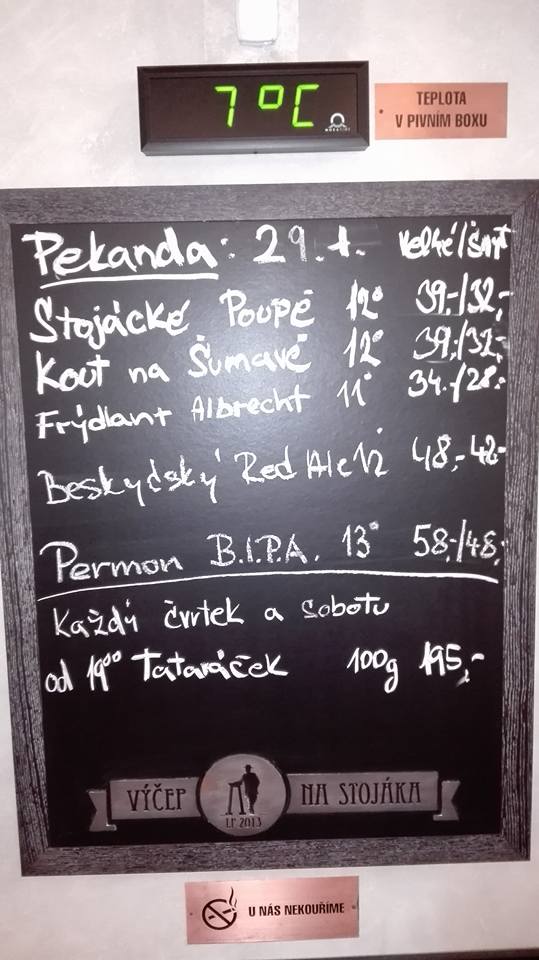 7°C
TEPLOTA
V PIVNÍM BOXU
Pekanda: 29.1. Velké/šnyt
Stojácké Poupě 12° 39,-/32,-
Kout na Šumavě 12° 39,-/32,-
Frýdlant Albrecht 11° 34,-/28,-
Beskydský Red Ale 12° 48,- 42,-
Permon B.I.P.A. 13° 58,-/48,-
Každý čvrtek a sobotu
od 19⁰⁰ Tataráček 100g 195,-
VÝČEP NA STOJÁKA
LP 2013
U NÁS NEKOUŘÍME